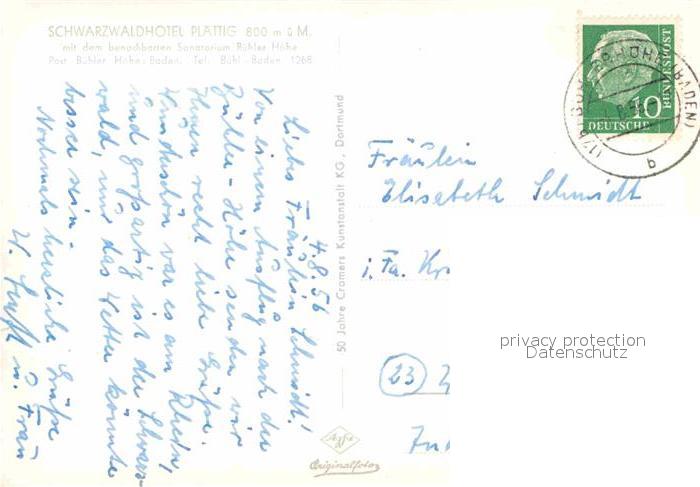 SCHWARZWALDHOTEL PLÄTTIG 800 m ü M.
mit dem benachbarten Sanatorium Bühler Höhe
Post Bühler Höhe-Baden. Tel. Bühl-Baden 1268
4.8.56
Liebes Fräulein Schmidt!
Von einem Ausflug nach der
Bühler-Höhe senden wir
Ihnen recht liebe Grüße.
Wunderschön war es am Rhein,
und großartig ist der Schwarz-
wald, nur das Wetter könnte
besser sein.
Nochmals herzliche Grüße
u. Frau
50 Jahre Cramers Kunstanstalt KG., Dortmund
DEUTSCHE
BUNDESPOST
10
(BADEN)
b
Fräulein
Elisabeth Schmidt
i. Fa.
(23)
privacy protection
Datenschutz
Agfa
Originalfoto